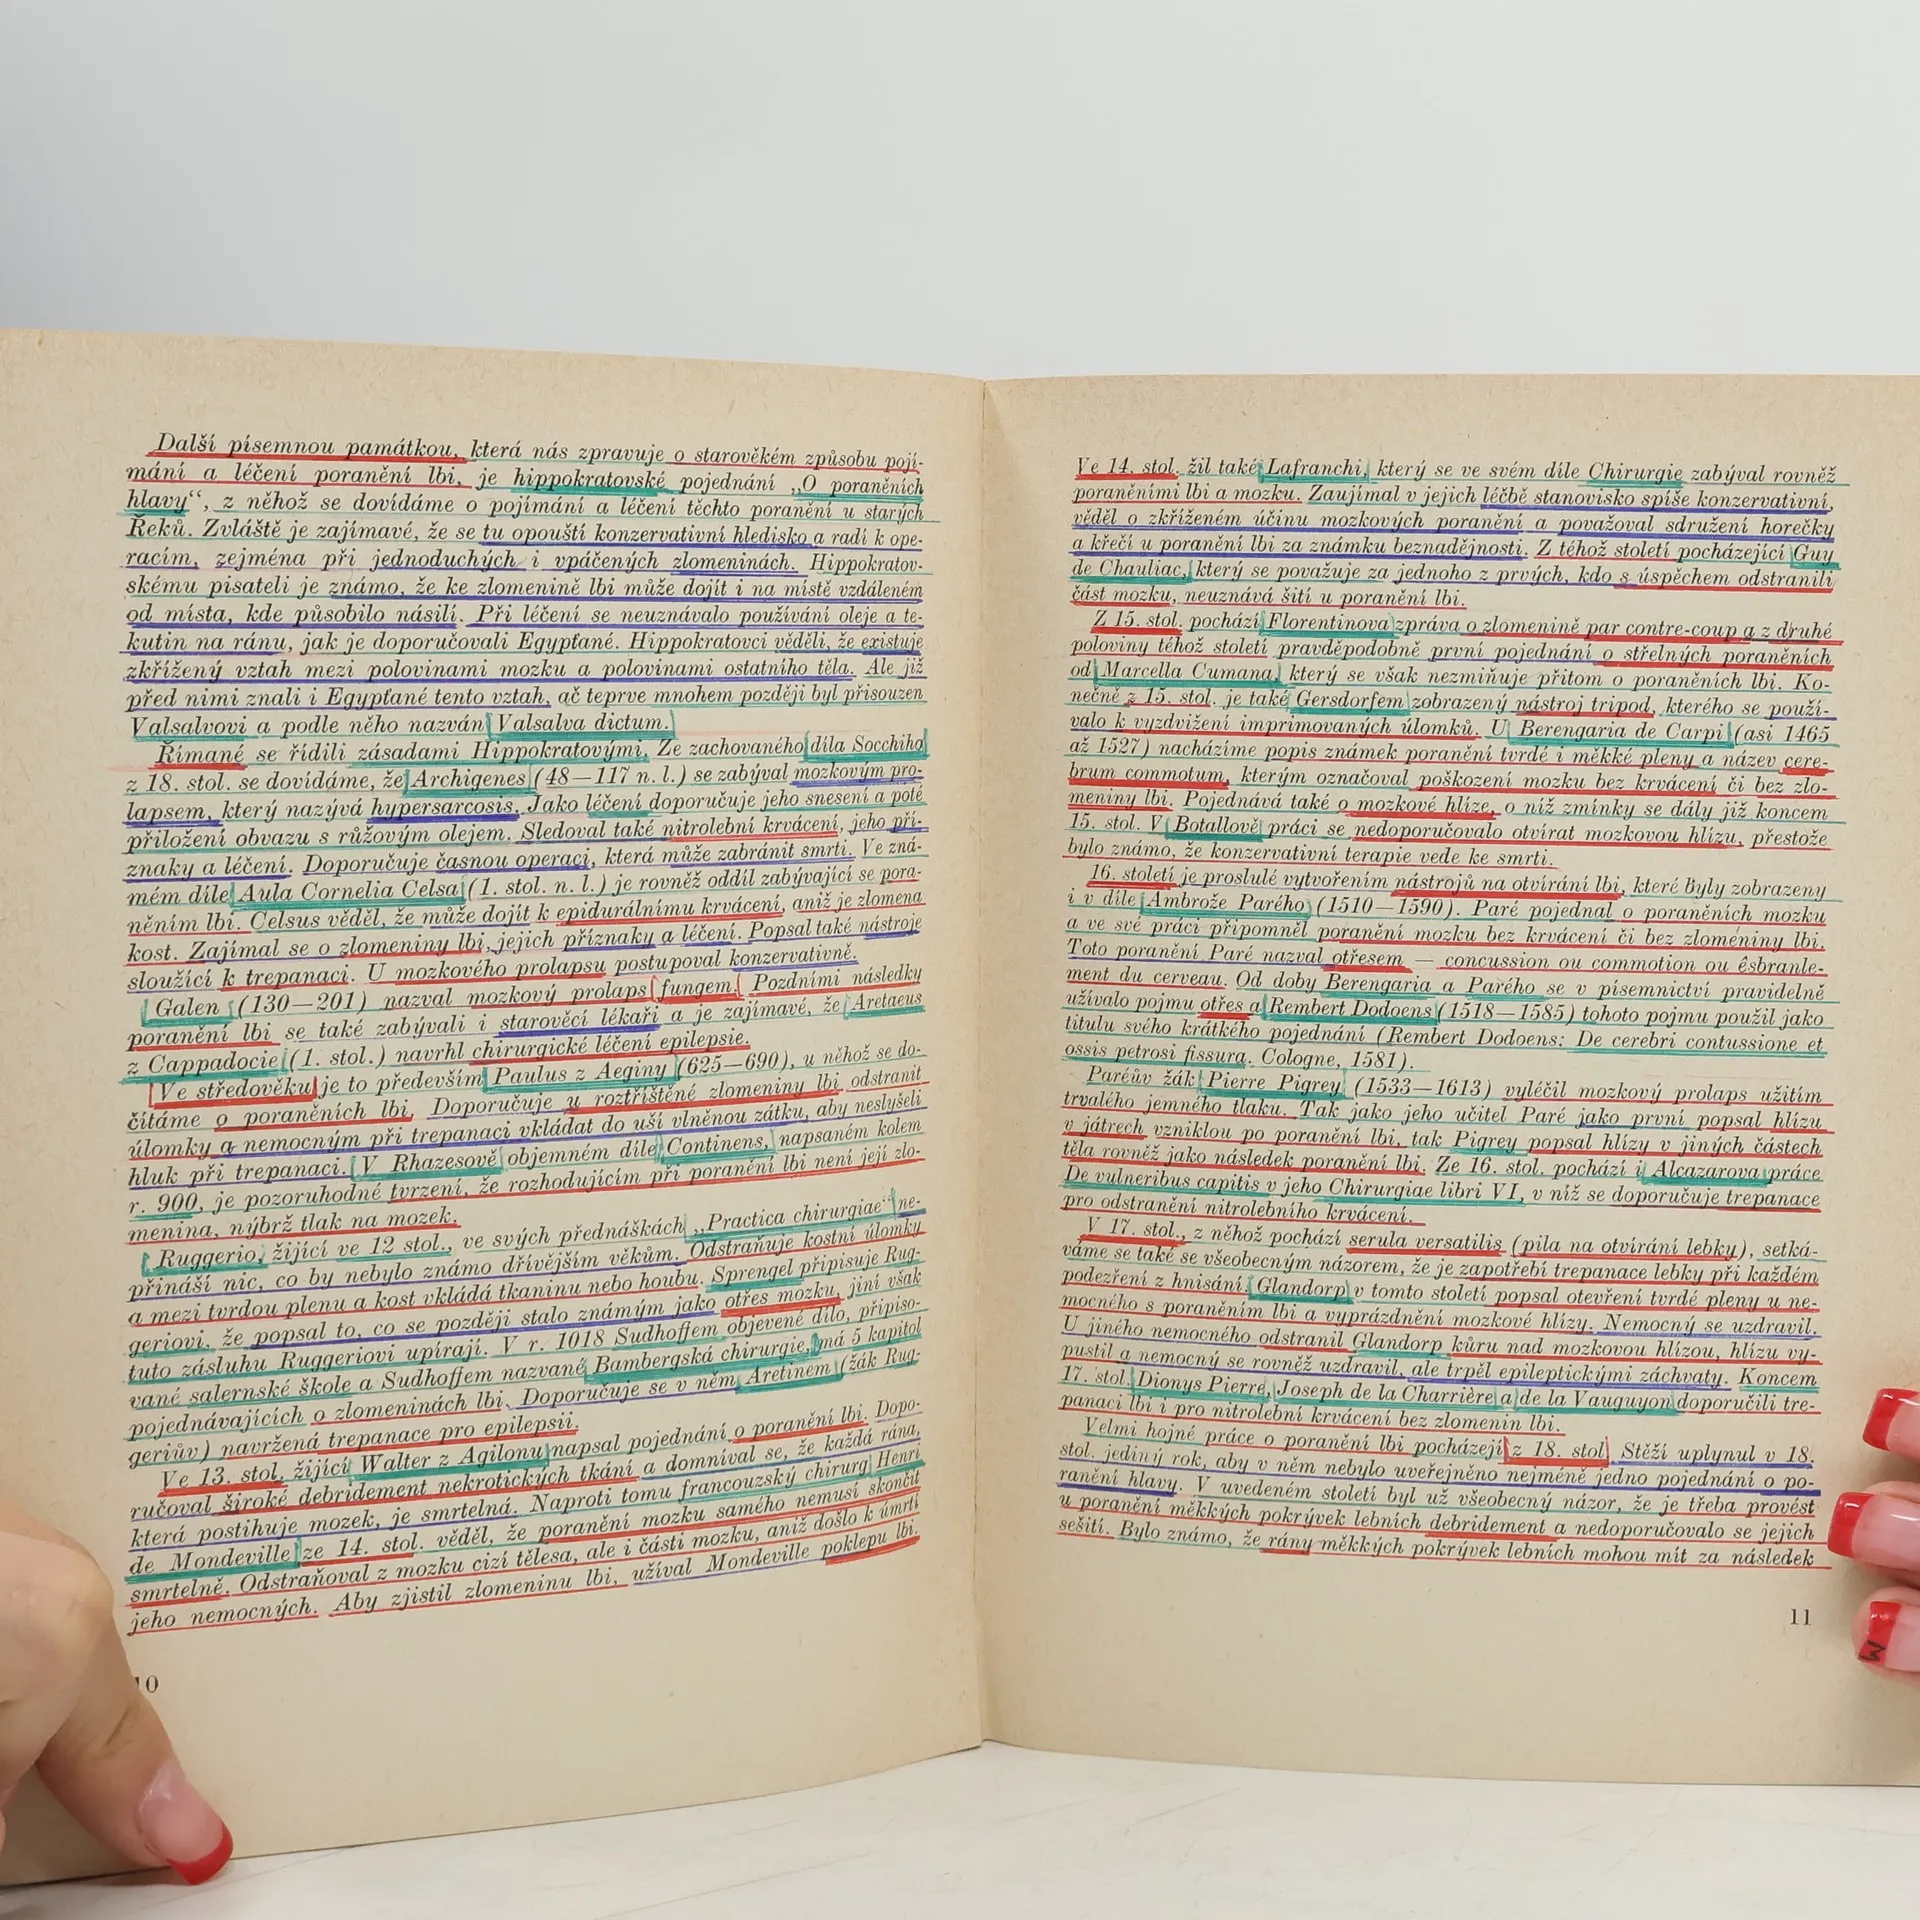 Další písemnou památkou, která nás zpravuje o starověkém způsobu pojí-
mání a léčení poranění lbi, je hippokratovské pojednání „O poraněních
hlavy“, z něhož se dovídáme o pojímání a léčení těchto poranění u starých
Řeků. Zvláště je zajímavé, že se tu opouští konzervativní hledisko a radí k ope-
racím, zejména při jednoduchých i vpáčených zlomeninách. Hippokratov-
skému pisateli je známo, že ke zlomenině lbi může dojít i na místě vzdáleném
od místa, kde působilo násilí. Při léčení se neuznávalo používání oleje a te-
kutin na ránu, jak je doporučovali Egypťané. Hippokratovci věděli, že existuje
zkřížený vztah mezi polovinami mozku a polovinami ostatního těla. Ale již
před nimi znali i Egypťané tento vztah, ač teprve mnohem později byl přisouzen
Valsalvovi a podle něho nazván Valsalva dictum.
Římané se řídili zásadami Hippokratovými. Ze zachovaného díla Socchiho
z 18. stol. se dovídáme, že Archigenes (48—117 n. l.) se zabýval mozkovým pro-
lapsem, který nazývá hypersarcosis. Jako léčení doporučuje jeho snesení a poté
přiložení obvazu s růžovým olejem. Sledoval také nitrolební krvácení, jeho pří-
znaky a léčení. Doporučuje časnou operaci, která může zabránit smrti. Ve zná-
mém díle Aula Cornelia Celsa (1. stol. n. l.) je rovněž oddíl zabývající se pora-
něním lbi. Celsus věděl, že může dojít k epidurálnímu krvácení, aniž je zlomena
kost. Zajímal se o zlomeniny lbi, jejich příznaky a léčení. Popsal také nástroje
sloužící k trepanaci. U mozkového prolapsu postupoval konzervativně.
Galen (130—201) nazval mozkový prolaps fungem. Pozdními následky
poranění lbi se také zabývali i starověcí lékaři a je zajímavé, že Aretaeus
z Cappadocie (1. stol.) navrhl chirurgické léčení epilepsie.
Ve středověku je to především Paulus z Aeginy (625—690), u něhož se do-
čítáme o poraněních lbi. Doporučuje u roztříštěné zlomeniny lbi odstranit
úlomky a nemocným při trepanaci vkládat do uší vlněnou zátku, aby neslyšeli
hluk při trepanaci. V Rhazesově objemném díle Continens, napsaném kolem
r. 900, je pozoruhodné tvrzení, že rozhodujícím při poranění lbi není její zlo-
menina, nýbrž tlak na mozek.
Ruggerio, žijící ve 12 stol., ve svých přednáškách „Practica chirurgiae“ ne-
přináší nic, co by nebylo známo dřívějším věkům. Odstraňuje kostní úlomky
a mezi tvrdou plenu a kost vkládá tkaninu nebo houbu. Sprengel připisuje Rug-
geriovi, že popsal to, co se později stalo známým jako otřes mozku, jiní však
tuto zásluhu Ruggeriovi upírají. V r. 1018 Sudhoffem objevené dílo, připiso-
vané salernské škole a Sudhoffem nazvané Bambergská chirurgie, má 5 kapitol
pojednávajících o zlomeninách lbi. Doporučuje se v něm Aretinem (žák Rug-
geriův) navržená trepanace pro epilepsii.
Ve 13. stol. žijící Walter z Agilonu napsal pojednání o poranění lbi. Dopo-
ručoval široké debridement nekrotických tkání a domníval se, že každá rána,
která postihuje mozek, je smrtelná. Naproti tomu francouzský chirurg Henri
de Mondeville ze 14. stol. věděl, že poranění mozku samého nemusí skončit
smrtelně. Odstraňoval z mozku cizí tělesa, ale i části mozku, aniž došlo k úmrtí
jeho nemocných. Aby zjistil zlomeninu lbi, užíval Mondeville poklepu lbi.
10
Ve 14. stol. žil také Lafranchi, který se ve svém díle Chirurgie zabýval rovněž
poraněními lbi a mozku. Zaujímal v jejich léčbě stanovisko spíše konzervativní,
věděl o zkříženém účinu mozkových poranění a považoval sdružení horečky
a křečí u poranění lbi za známku beznadějnosti. Z téhož století pocházející Guy
de Chauliac, který se považuje za jednoho z prvých, kdo s úspěchem odstranili
část mozku, neuznává šití u poranění lbi.
Z 15. stol. pochází Florentinova zpráva o zlomenině par contre-coup a z druhé
poloviny téhož století pravděpodobně první pojednání o střelných poraněních
od Marcella Cumana, který se však nezmiňuje přitom o poraněních lbi. Ko-
nečně z 15. stol. je také Gersdorfem zobrazený nástroj tripod, kterého se použí-
valo k vyzdvižení imprimovaných úlomků. U Berengaria de Carpi (asi 1465
až 1527) nacházíme popis známek poranění tvrdé i měkké pleny a název cere-
brum commotum, kterým označoval poškození mozku bez krvácení či bez zlo-
meniny lbi. Pojednává také o mozkové hlíze, o níž zmínky se dály již koncem
15. stol. V Botallově práci se nedoporučovalo otvírat mozkovou hlízu, přestože
bylo známo, že konzervativní terapie vede ke smrti.
16. století je proslulé vytvořením nástrojů na otvírání lbi, které byly zobrazeny
i v díle Ambrože Parého (1510—1590). Paré pojednal o poraněních mozku
a ve své práci připomněl poranění mozku bez krvácení či bez zlomeniny lbi.
Toto poranění Paré nazval otřesem — concussion ou commotion ou êsbranle-
ment du cerveau. Od doby Berengaria a Parého se v písemnictví pravidelně
užívalo pojmu otřes a Rembert Dodoens (1518—1585) tohoto pojmu použil jako
titulu svého krátkého pojednání (Rembert Dodoens: De cerebri contussione et
ossis petrosi fissura. Cologne, 1581).
Paréův žák Pierre Pigrey (1533—1613) vyléčil mozkový prolaps užitím
trvalého jemného tlaku. Tak jako jeho učitel Paré jako první popsal hlízu
v játrech vzniklou po poranění lbi, tak Pigrey popsal hlízy v jiných částech
těla rovněž jako následek poranění lbi. Ze 16. stol. pochází i Alcazarova práce
De vulneribus capitis v jeho Chirurgiae libri VI, v níž se doporučuje trepanace
pro odstranění nitrolebního krvácení.
V 17. stol., z něhož pochází serula versatilis (pila na otvírání lebky), setká-
váme se také se všeobecným názorem, že je zapotřebí trepanace lebky při každém
podezření z hnisání. Glandorp v tomto století popsal otevření tvrdé pleny u ne-
mocného s poraněním lbi a vyprázdnění mozkové hlízy. Nemocný se uzdravil.
U jiného nemocného odstranil Glandorp kůru nad mozkovou hlízou, hlízu vy-
pustil a nemocný se rovněž uzdravil, ale trpěl epileptickými záchvaty. Koncem
17. stol. Dionys Pierre, Joseph de la Charrière a de la Vauguyon doporučili tre-
panaci lbi i pro nitrolební krvácení bez zlomenin lbi.
Velmi hojné práce o poranění lbi pocházejí z 18. stol. Stěží uplynul v 18.
stol. jediný rok, aby v něm nebylo uveřejněno nejméně jedno pojednání o po-
ranění hlavy. V uvedeném století byl už všeobecný názor, že je třeba provést
u poranění měkkých pokrývek lebních debridement a nedoporučovalo se jejich
sešití. Bylo známo, že rány měkkých pokrývek lebních mohou mít za následek
11